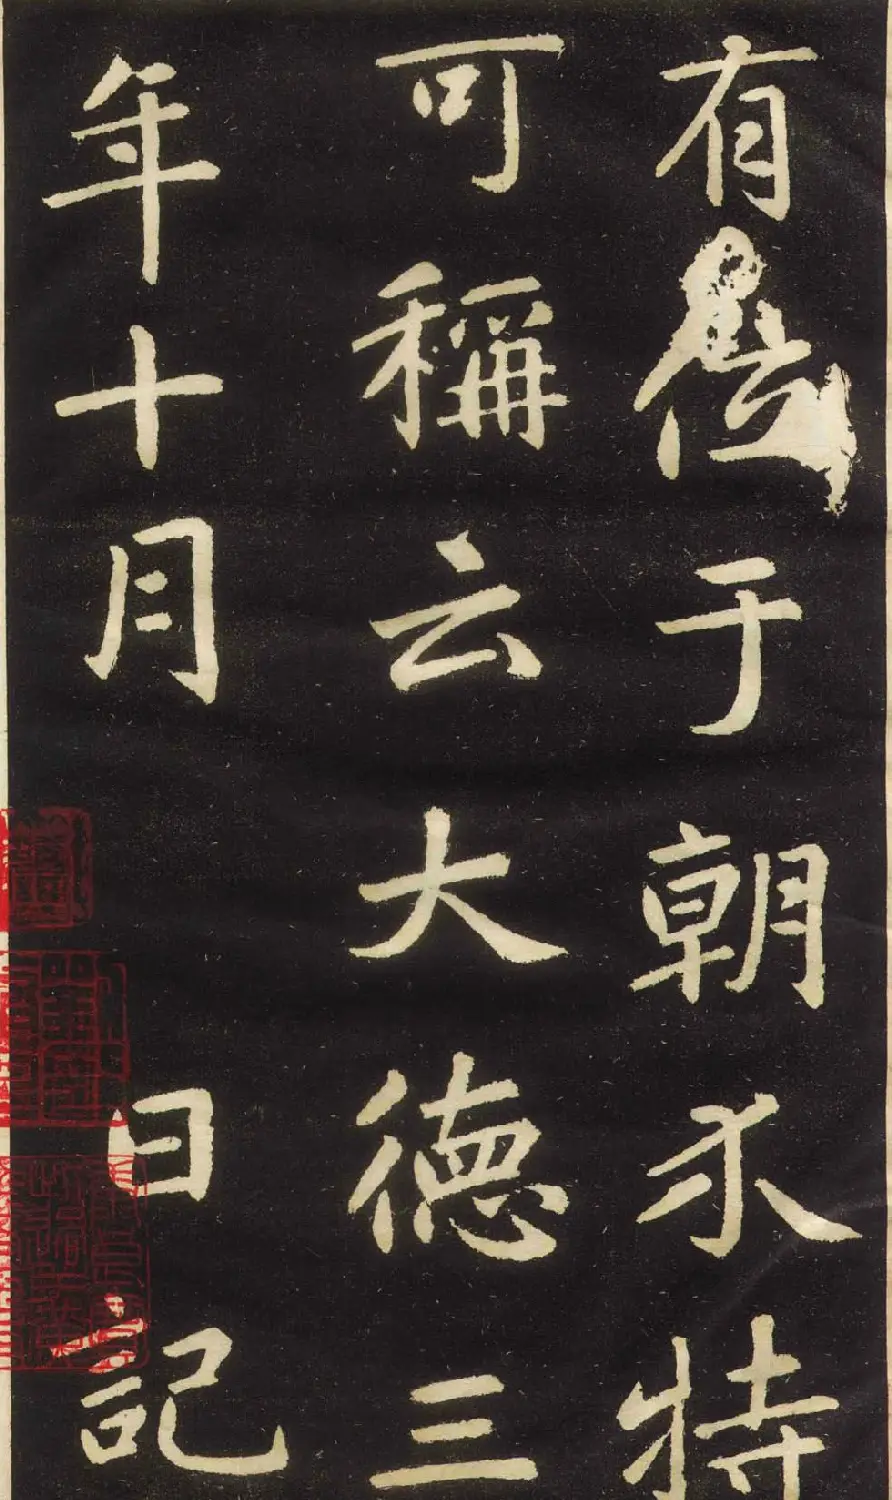 有位于朝尤特
可稱云大德三
年十月 日記